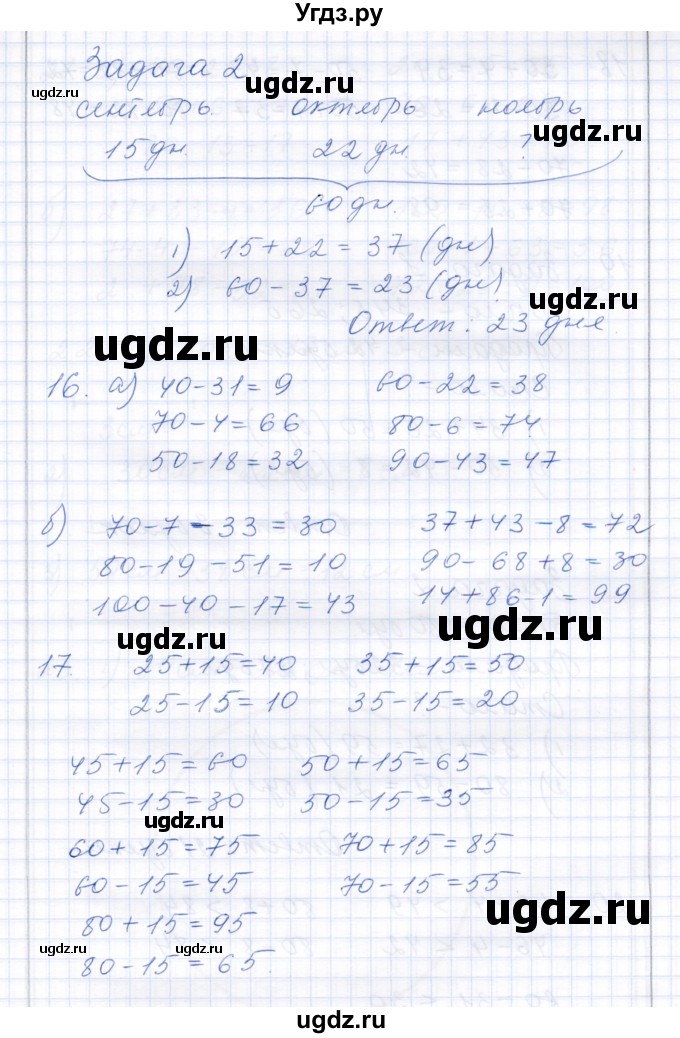 Угдз.ру
Задача 2
ugdz.ru ugdz.ru ugdz.ru
сентябрь. октябрь ноябрь
ugdz.ru
15 дн. 22 дн. ?
60 дн.
1) 15+22=37 (дн)
2) 60-37=23 (дн)
ugdz.ru
Ответ: 23 дня
ugdz.ru
16. а) 40-31=9 60-22=38
70-4=66 80-6=74
50-18=32 90-43=47
б) 70-7-33=30 37+43-8=72
80-19-51=10 90-68+8=30
100-40-17=43 14+86-1=99
ugdz.ru ugdz.ru
17. 25+15=40 35+15=50
25-15=10 35-15=20
45+15=60 50+15=65
45-15=30 50-15=35
ugdz.ru
60+15=75 70+15=85
60-15=45 70-15=55
80+15=95
ugdz.ru
ugdz.ru ugdz.ru ugdz.ru
80-15=65.
ugdz.ru